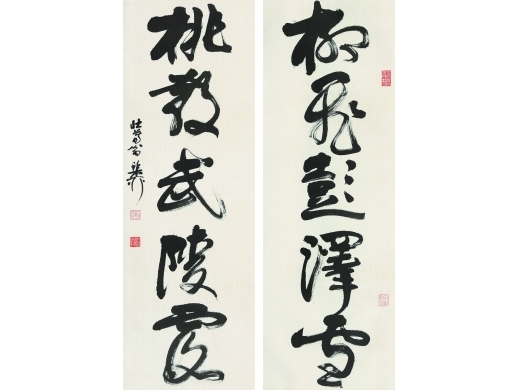 柳飛彭澤雪
桃散武陵霞
壯暮翁稚柳